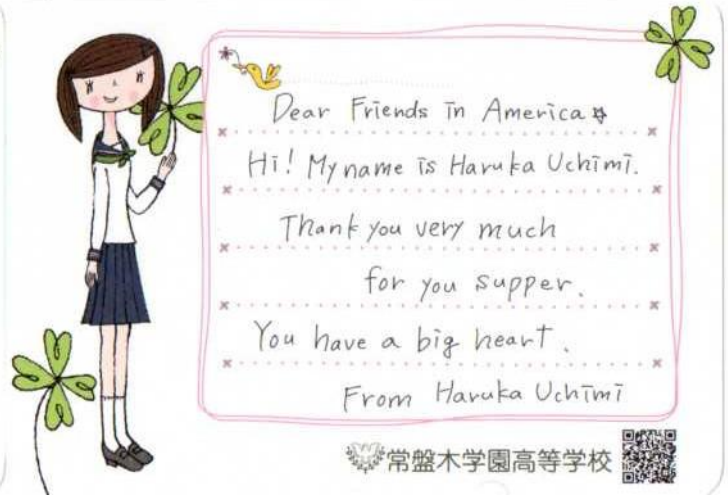 Dear Friends in America☆
Hi! My name is Haruka Uchimi.
Thank you very much
for you supper.
You have a big heart.
From Haruka Uchimi
常盤木学園高等学校